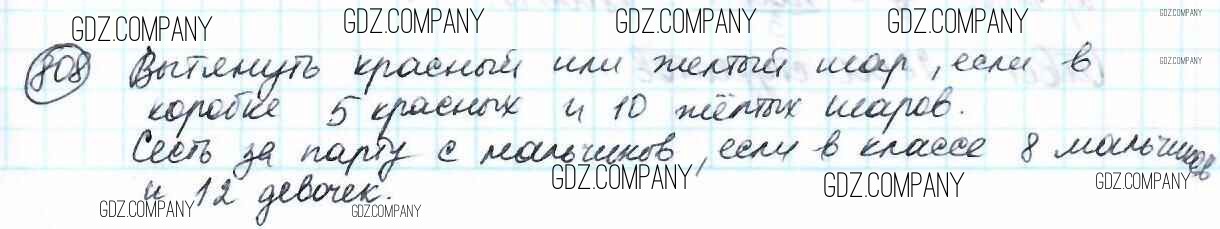 GDZ.COMPANY GDZ.COMPANY GDZ.COMPANY GDZ.COMPANY GDZ.COMPANY
808 Вытянуть красный или желтый шар, если в
GDZ.COMPANY GDZ.COMPANY GDZ.COMPANY GDZ.COMPANY GDZ.COMPANY
коробке 5 красных и 10 жёлтых шаров.
Сесть за парту с мальчиков, если в классе 8 мальчиков
GDZ.COMPANY GDZ.COMPANY GDZ.COMPANY
и 12 девочек.
GDZ.COMPANY GDZ.COMPANY